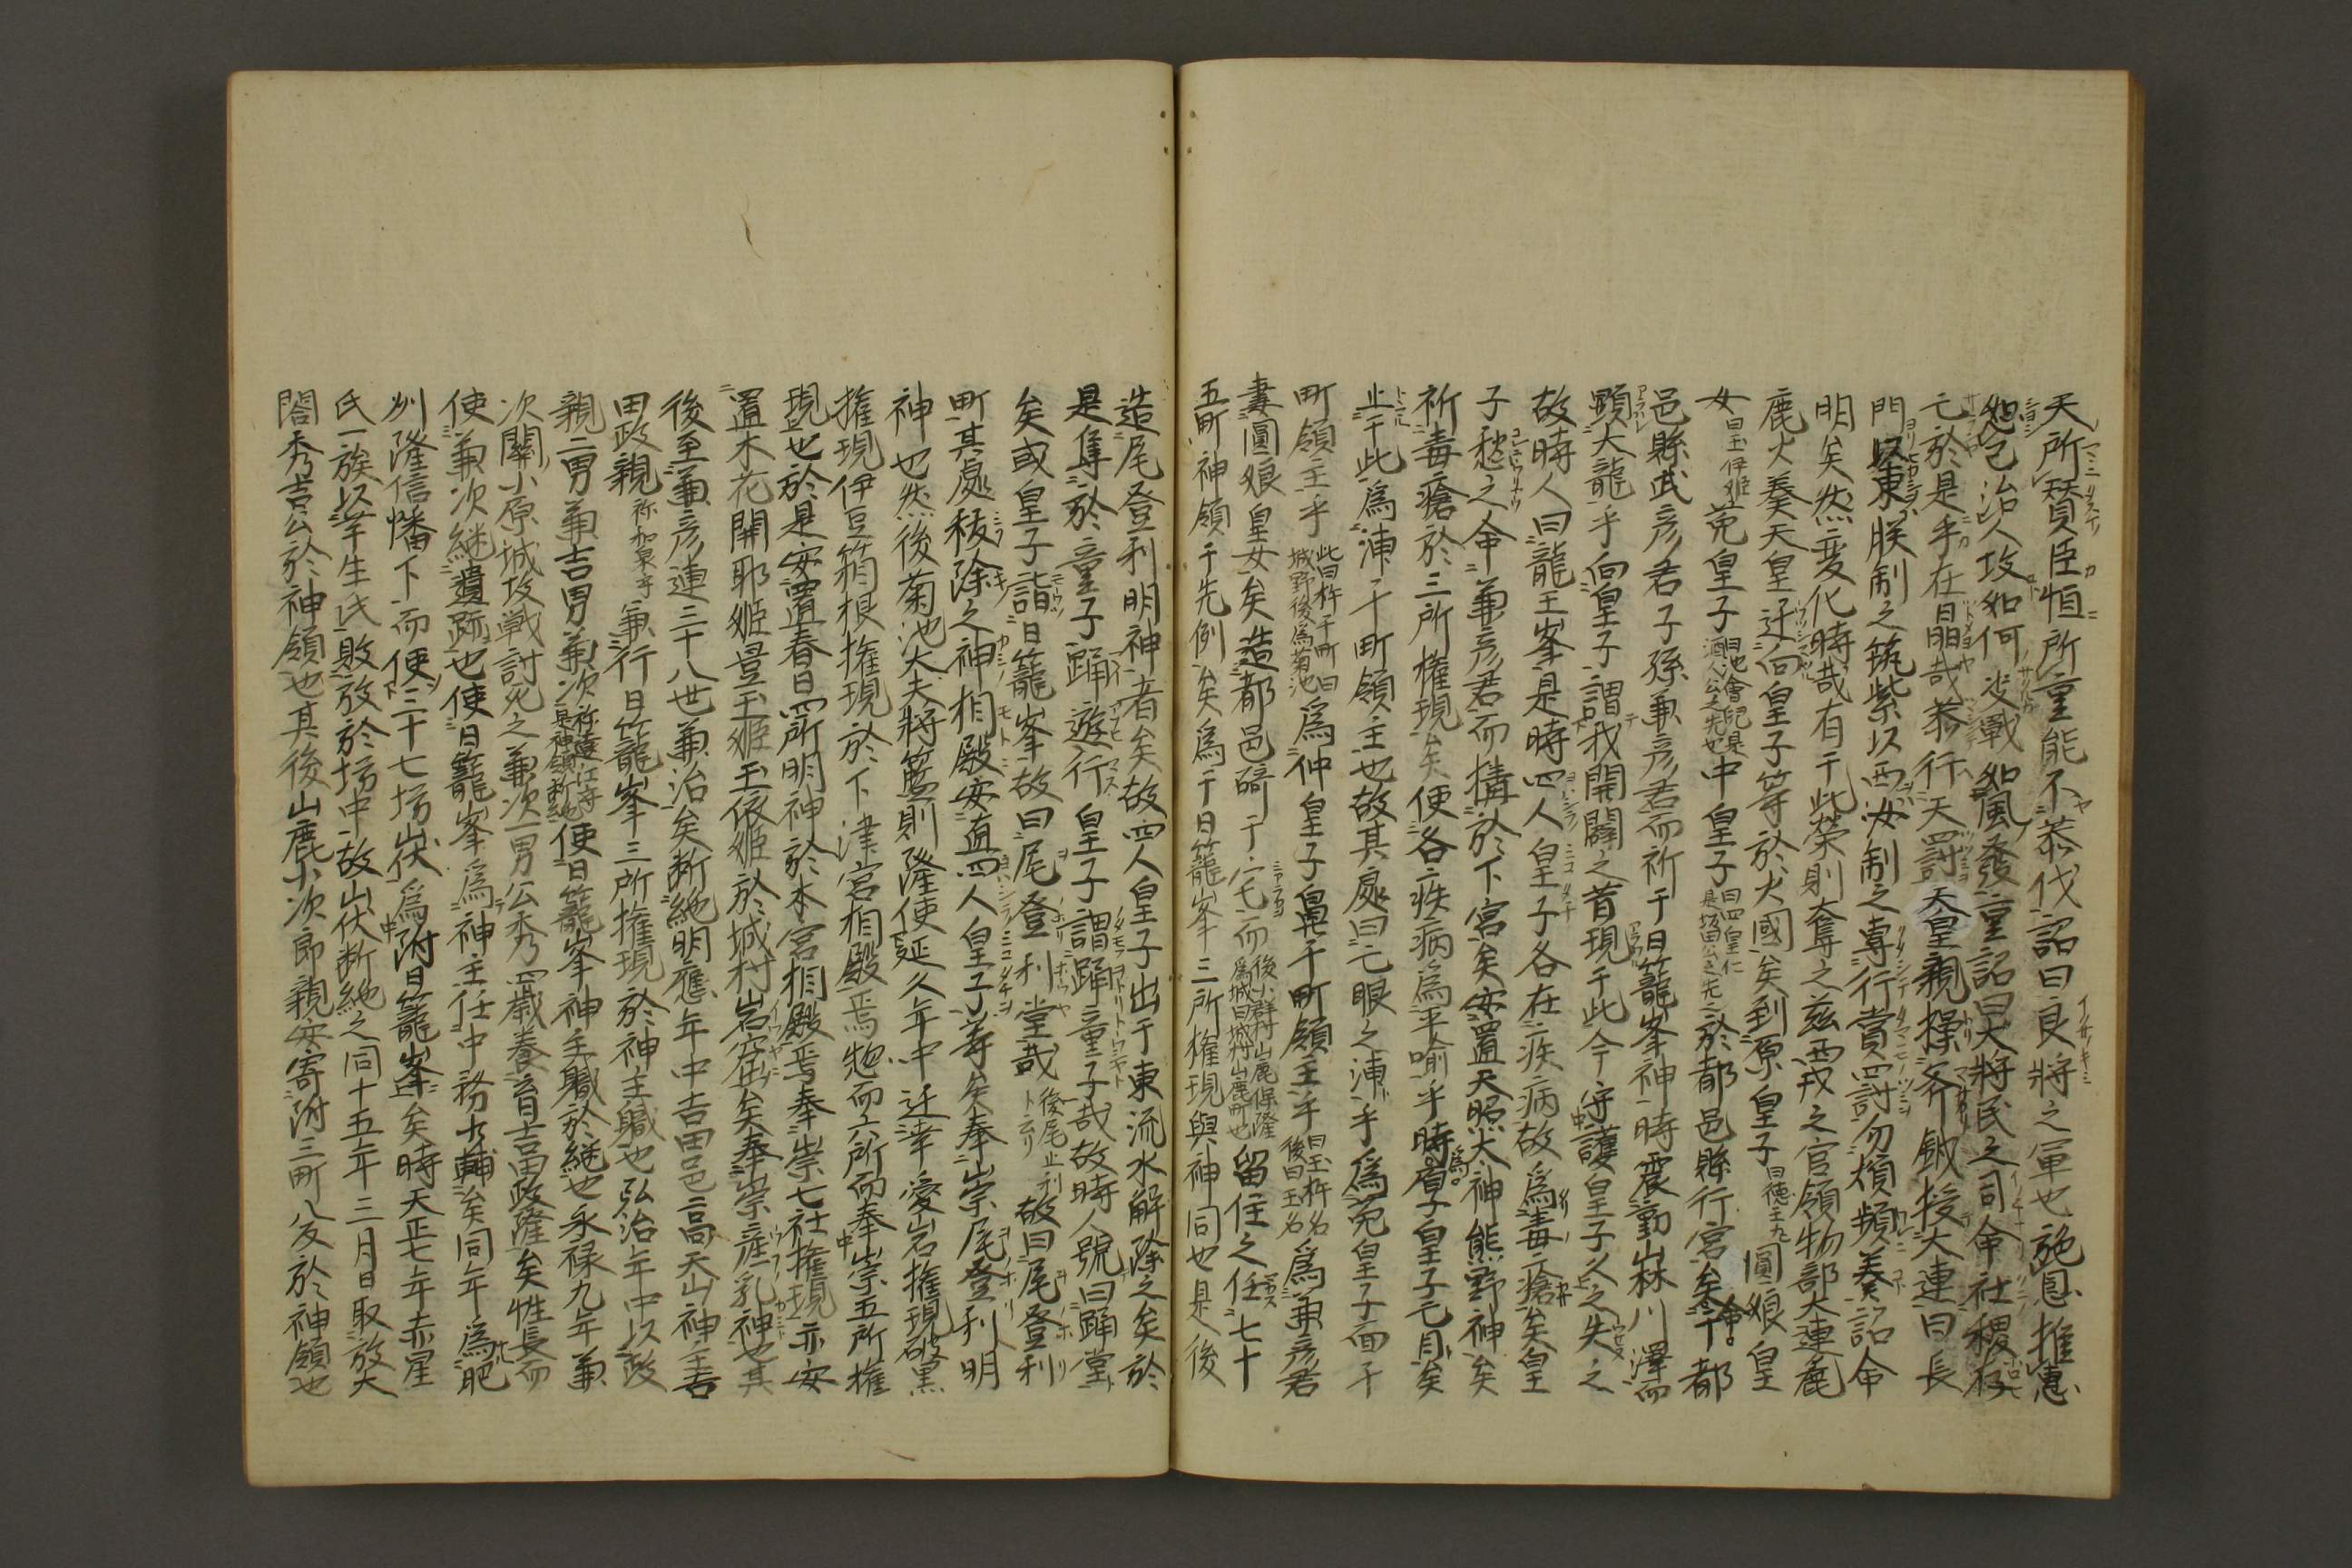 天所賛臣恒所重能不恭伐詔曰良將之軍也施恩推惠
怨己治人攻如何 戰如風發重詔曰大將民之司命社稷存
亡於是乎在勗哉恭行天罸天皇親操斧鉞授大連曰長
門以東朕制之筑紫以西汝制之專行賞罸勿煩頻奏詔命
明矣然変化時哉有于此荣則奪之兹西戎之官領物部大連麁
鹿火奏天皇迂向皇子等於火國矣到原皇子曰徳王九圓娘皇
女曰玉伊姫立莵皇子曰地會紀是酒人公之先也中皇子曰四皇仁是坂田公之先也於都邑縣行宮矣命于都
邑縣武彦君子孫兼彦君而祈于日籠峯神時震動山林川澤而
顕大龍乎向皇子謂我開闢之昔現于此今守護皇子久之失之
故時人曰龍王峯是時四人皇子各在疾病故為毒瘡矣皇
子愁之命兼彦君而構於下宮矣安置天照大神熊野神矣
祈毒瘡於三所権現矣便各疾病為平喻乎時為盲子皇子亡目矣
止于此為涷千町領主也故其處曰亡眼之涷乎為莵皇子面千
町領主乎此曰杵千町曰城野後為菊池為仲皇子墓千町領主乎曰玉杵名後曰玉名為兼彦君
妻圓娘皇女矣造都邑碕于宅而後小群村山鹿保隆為城曰城村山鹿町也留住之任七十
五町神領于先例矣為于日籠峯三所権現與神同也是後
造尾登利明神者矣故四人皇子出于東流水解除之矣於
是隼於童子踊遊行皇子謂踊童子哉故時人號曰踊堂
矣或皇子詣日籠峯故曰尾登利堂哉後尾止利ト云リ故曰尾登利
町其處秡除之神相殿安直四人皇子等矣奉崇尾登利明
神也然後菊池大夫將籃則隆使延久年中迁幸愛岩権現破黒
権現伊豆箱根権現於下津宮相殿焉惣而六所而奉崇五所権
現也於是安置春日四所明神於本宮相殿焉奉崇七社権現亦安
置木花開耶姫豊玉姫玉依姫於城村岩窟矣奉崇産乳神也其
後至兼彦連三十八世兼治矣断絶明應年中吉田邑高天山神主吉
田政親祢和泉守兼行日籠峯三所権現於神主職也弘治年中以政
親二男兼吉男兼次祢遠江守是神領断絶使日籠峯神主職於継也永禄九年兼
次關小原城攻戦討死之兼次一男公秀四歳養育吉田政隆矣性長而
使兼次継遺跡也使日籠峯為神主任中務少輔矣同年為肥
州隆信幡下而便三十七坊山伏為附日籠峯矣時天正七年赤星
氏一族以芋生氏敗放於坊中故山伏断絶之同十五年三月日取放大
閤秀吉公於神領也其後山鹿小次郎親安寄附三町八反於神領也